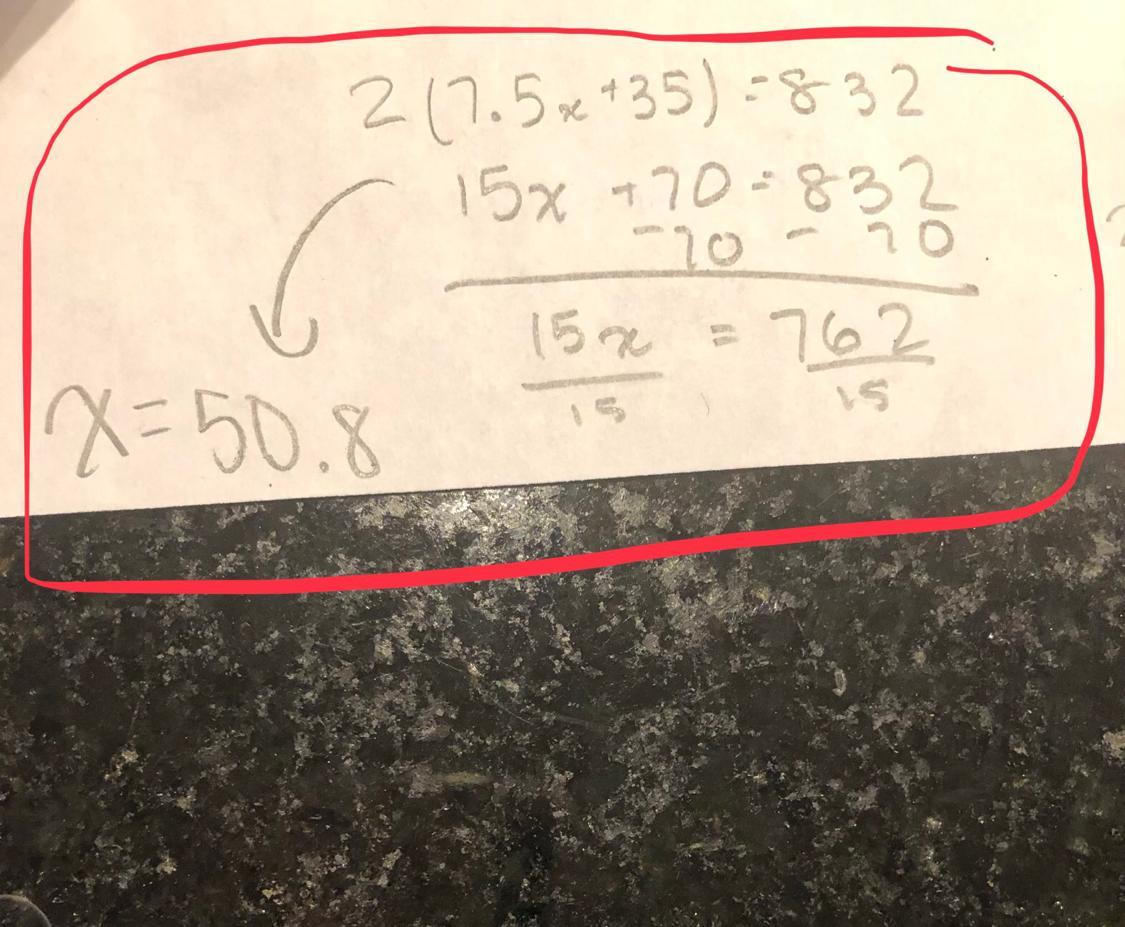 2(7.5x+35)=832
15x +70=832
-70 - 70
15x = 762
15 15
x=50.8